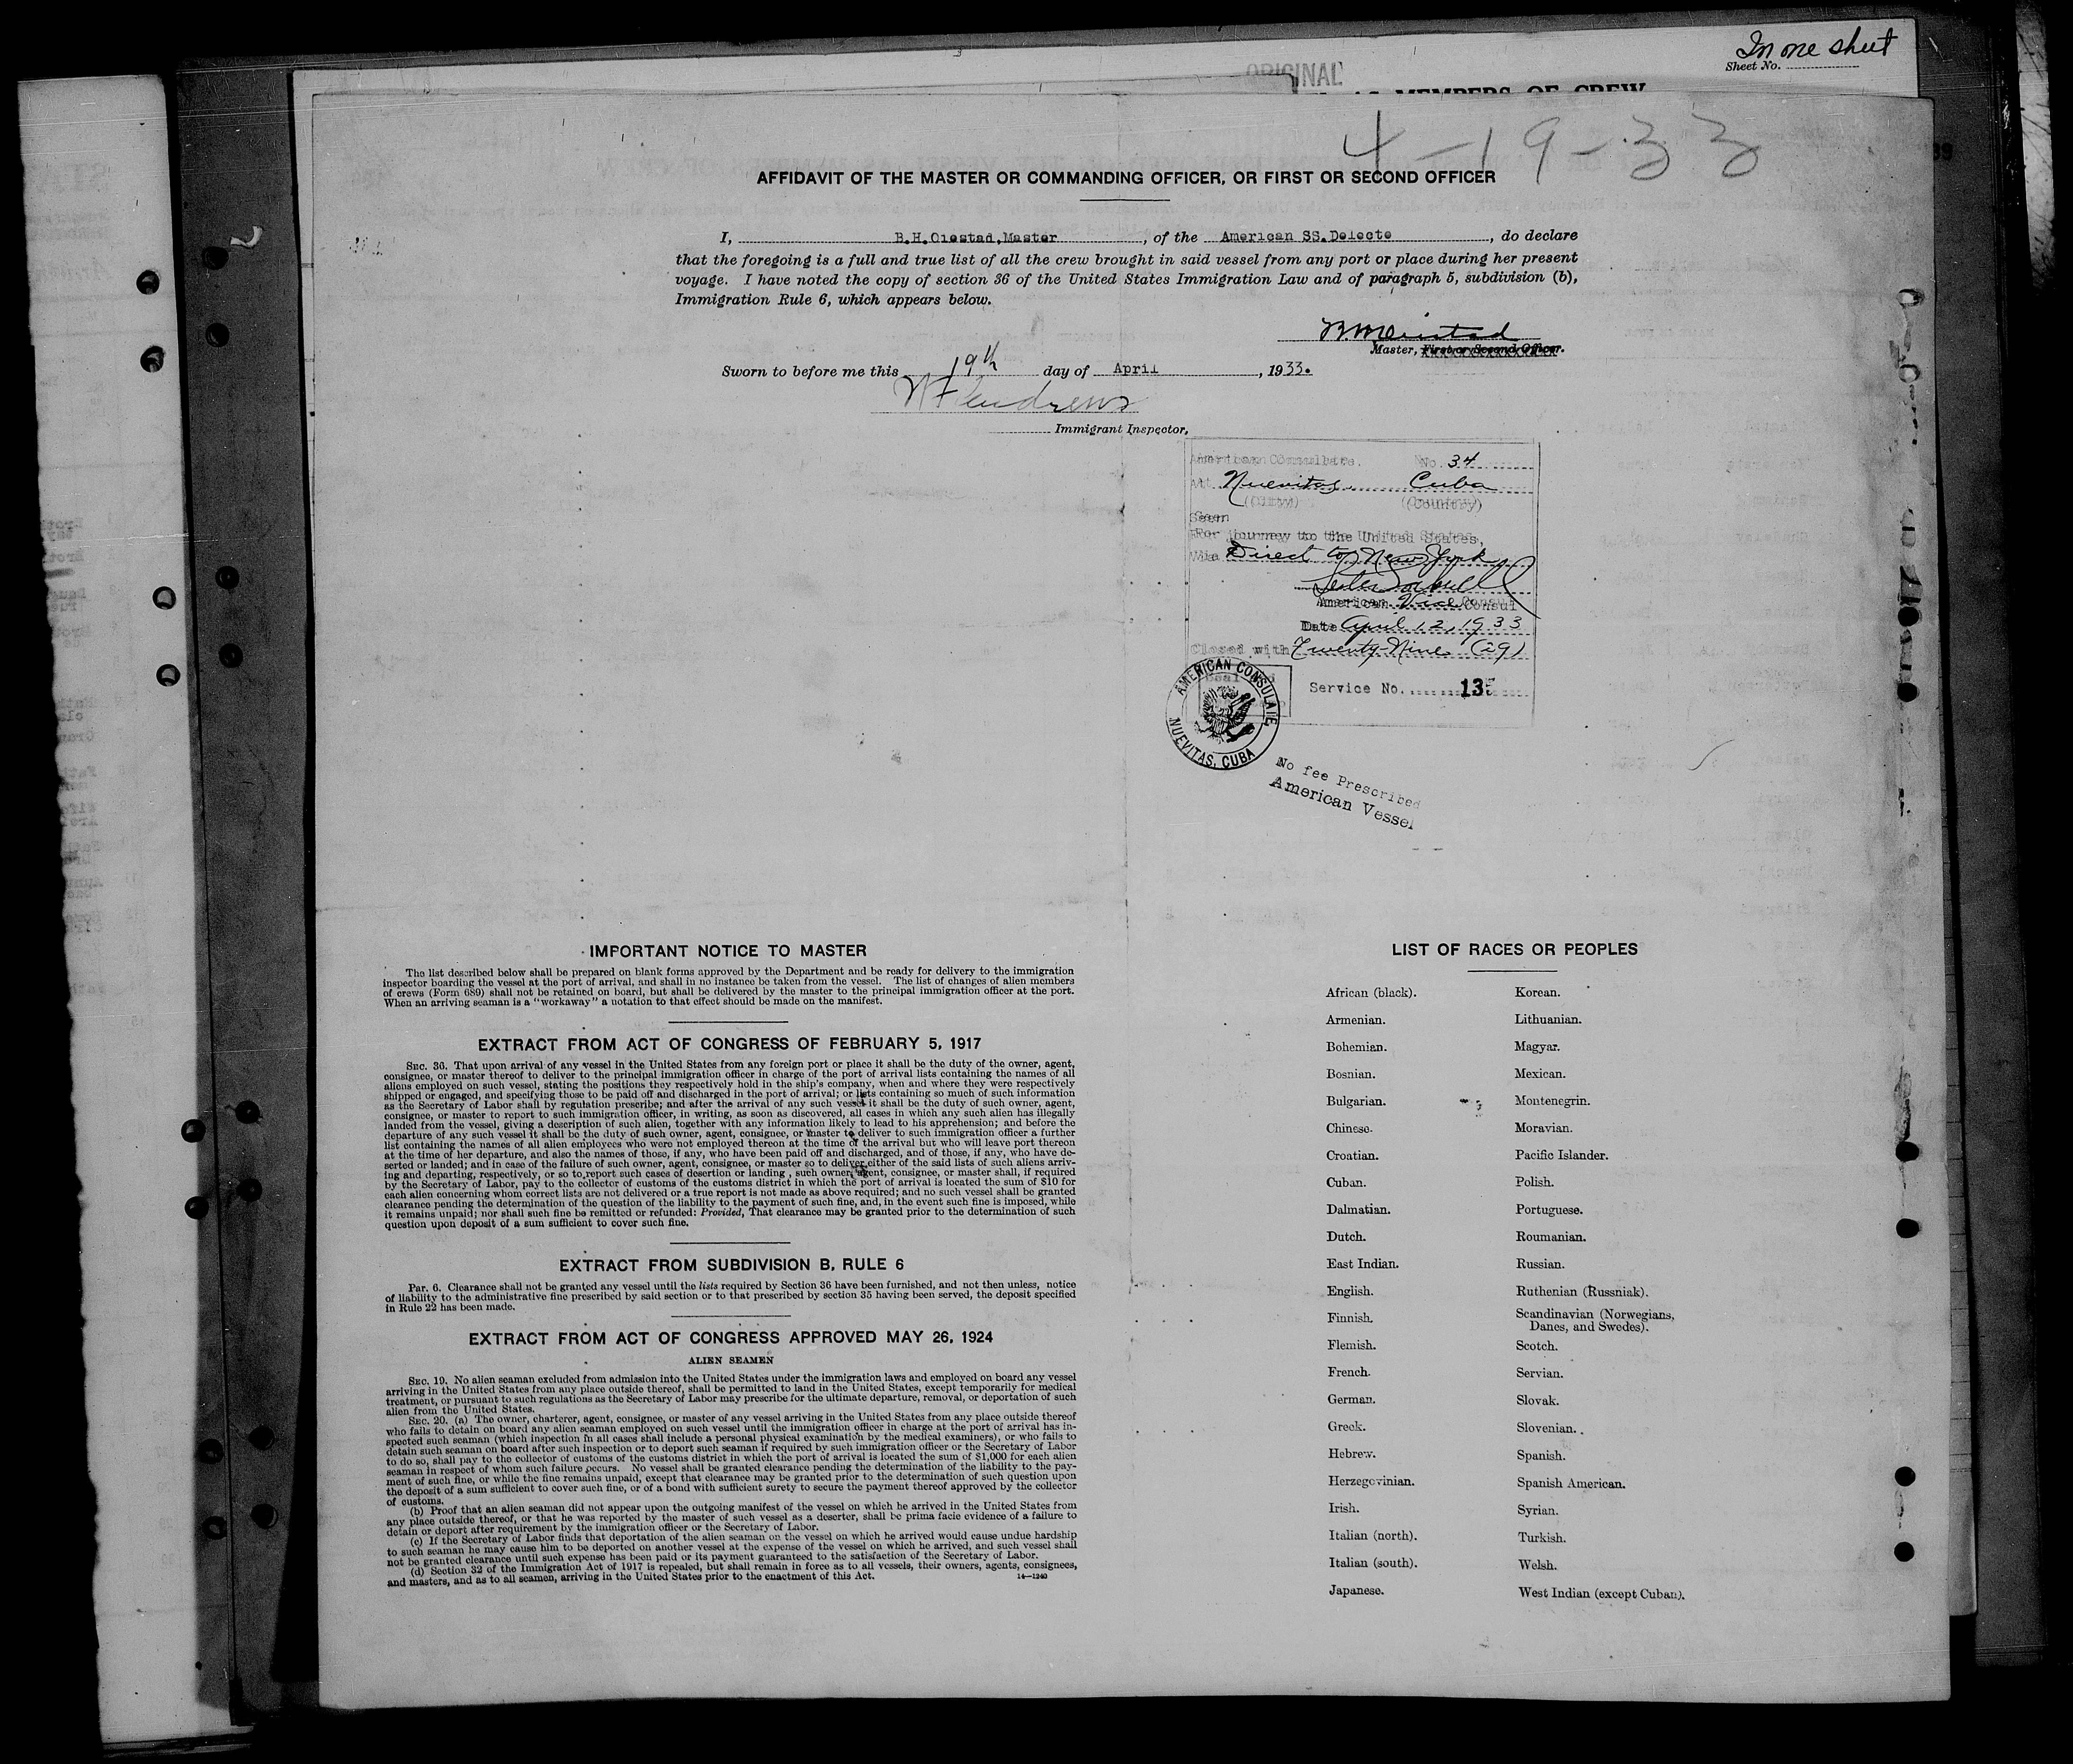 In one sheet
Sheet No.
ORIGINAL
AS MEMBERS OF CREW
4-19-33
AFFIDAVIT OF THE MASTER OR COMMANDING OFFICER, OR FIRST OR SECOND OFFICER
I, B.H.Oiestad,Master, of the American SS.Delecto, do declare
that the foregoing is a full and true list of all the crew brought in said vessel from any port or place during her present
voyage. I have noted the copy of section 36 of the United States Immigration Law and of paragraph 5, subdivision (b),
Immigration Rule 6, which appears below.
Master, First or Second Officer.
Sworn to before me this 19th day of April, 1933.
Andrews
Immigrant Inspector.
American Consulate. No. 34
At Nuevitas, Cuba
(City) (Country)
Seen
For journey to the United States,
Via Direct to New York
American Vice Consul
Date April 12, 1933
Closed with Twenty-Nine (29)
Seal
Service No. 135
AMERICAN CONSULATE
NUEVITAS, CUBA
No fee Prescribed
American Vessel
IMPORTANT NOTICE TO MASTER
The list described below shall be prepared on blank forms approved by the Department and be ready for delivery to the immigration
inspector boarding the vessel at the port of arrival, and shall in no instance be taken from the vessel. The list of changes of alien members
of crews (Form 689) shall not be retained on board, but shall be delivered by the master to the principal immigration officer at the port.
When an arriving seaman is a "workaway" a notation to that effect should be made on the manifest.
EXTRACT FROM ACT OF CONGRESS OF FEBRUARY 5, 1917
SEC. 36. That upon arrival of any vessel in the United States from any foreign port or place it shall be the duty of the owner, agent,
consignee, or master thereof to deliver to the principal immigration officer in charge of the port of arrival lists containing the names of all
aliens employed on such vessel, stating the positions they respectively hold in the ship's company, when and where they were respectively
shipped or engaged, and specifying those to be paid off and discharged in the port of arrival; or lists containing so much of such information
as the Secretary of Labor shall by regulation prescribe; and after the arrival of any such vessel it shall be the duty of such owner, agent,
consignee, or master to report to such immigration officer, in writing, as soon as discovered, all cases in which any such alien has illegally
landed from the vessel, giving a description of such alien, together with any information likely to lead to his apprehension; and before the
departure of any such vessel it shall be the duty of such owner, agent, consignee, or master to deliver to such immigration officer a further
list containing the names of all alien employees who were not employed thereon at the time of the arrival but who will leave port thereon
at the time of her departure, and also the names of those, if any, who have been paid off and discharged, and of those, if any, who have de-
serted or landed; and in case of the failure of such owner, agent, consignee, or master so to deliver either of the said lists of such aliens arriv-
ing and departing, respectively, or so to report such cases of desertion or landing, such owner, agent, consignee, or master shall, if required
by the Secretary of Labor, pay to the collector of customs of the customs district in which the port of arrival is located the sum of $10 for
each alien concerning whom correct lists are not delivered or a true report is not made as above required; and no such vessel shall be granted
clearance pending the determination of the question of the liability to the payment of such fine, and, in the event such fine is imposed, while
it remains unpaid; nor shall such fine be remitted or refunded: Provided, That clearance may be granted prior to the determination of such
question upon deposit of a sum sufficient to cover such fine.
EXTRACT FROM SUBDIVISION B, RULE 6
Par. 6. Clearance shall not be granted any vessel until the lists required by Section 36 have been furnished, and not then unless, notice
of liability to the administrative fine prescribed by said section or to that prescribed by section 35 having been served, the deposit specified
in Rule 22 has been made.
EXTRACT FROM ACT OF CONGRESS APPROVED MAY 26, 1924
ALIEN SEAMEN
SEC. 19. No alien seaman excluded from admission into the United States under the immigration laws and employed on board any vessel
arriving in the United States from any place outside thereof, shall be permitted to land in the United States, except temporarily for medical
treatment, or pursuant to such regulations as the Secretary of Labor may prescribe for the ultimate departure, removal, or deportation of such
alien from the United States.
SEC. 20. (a) The owner, charterer, agent, consignee, or master of any vessel arriving in the United States from any place outside thereof
who fails to detain on board any alien seaman employed on such vessel until the immigration officer in charge at the port of arrival has in-
spected such seaman (which inspection in all cases shall include a personal physical examination by the medical examiners), or who fails to
detain such seaman on board after such inspection or to deport such seaman if required by such immigration officer or the Secretary of Labor
to do so, shall pay to the collector of customs of the customs district in which the port of arrival is located the sum of $1,000 for each alien
seaman in respect of whom such failure occurs. No vessel shall be granted clearance pending the determination of the liability to the pay-
ment of such fine, or while the fine remains unpaid, except that clearance may be granted prior to the determination of such question upon
the deposit of a sum sufficient to cover such fine, or of a bond with sufficient surety to secure the payment thereof approved by the collector
of customs.
(b) Proof that an alien seaman did not appear upon the outgoing manifest of the vessel on which he arrived in the United States from
any place outside thereof, or that he was reported by the master of such vessel as a deserter, shall be prima facie evidence of a failure to
detain or deport after requirement by the immigration officer or the Secretary of Labor.
(c) If the Secretary of Labor finds that deportation of the alien seaman on the vessel on which he arrived would cause undue hardship
to such seaman he may cause him to be deported on another vessel at the expense of the vessel on which he arrived, and such vessel shall
not be granted clearance until such expense has been paid or its payment guaranteed to the satisfaction of the Secretary of Labor.
(d) Section 32 of the Immigration Act of 1917 is repealed, but shall remain in force as to all vessels, their owners, agents, consignees,
and masters, and as to all seamen, arriving in the United States prior to the enactment of this Act.
14—1240
LIST OF RACES OR PEOPLES
African (black).
Armenian.
Bohemian.
Bosnian.
Bulgarian.
Chinese.
Croatian.
Cuban.
Dalmatian.
Dutch.
East Indian.
English.
Finnish.
Flemish.
French.
German.
Greek.
Hebrew.
Herzegovinian.
Irish.
Italian (north).
Italian (south).
Japanese.
Korean.
Lithuanian.
Magyar.
Mexican.
Montenegrin.
Moravian.
Pacific Islander.
Polish.
Portuguese.
Roumanian.
Russian.
Ruthenian (Russniak).
Scandinavian (Norwegians,
Danes, and Swedes).
Scotch.
Servian.
Slovak.
Slovenian.
Spanish.
Spanish American.
Syrian.
Turkish.
Welsh.
West Indian (except Cuban).